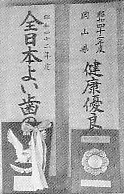 昭和四十三年度
岡山県
健康優良
昭和四十二年度
全日本よい歯の